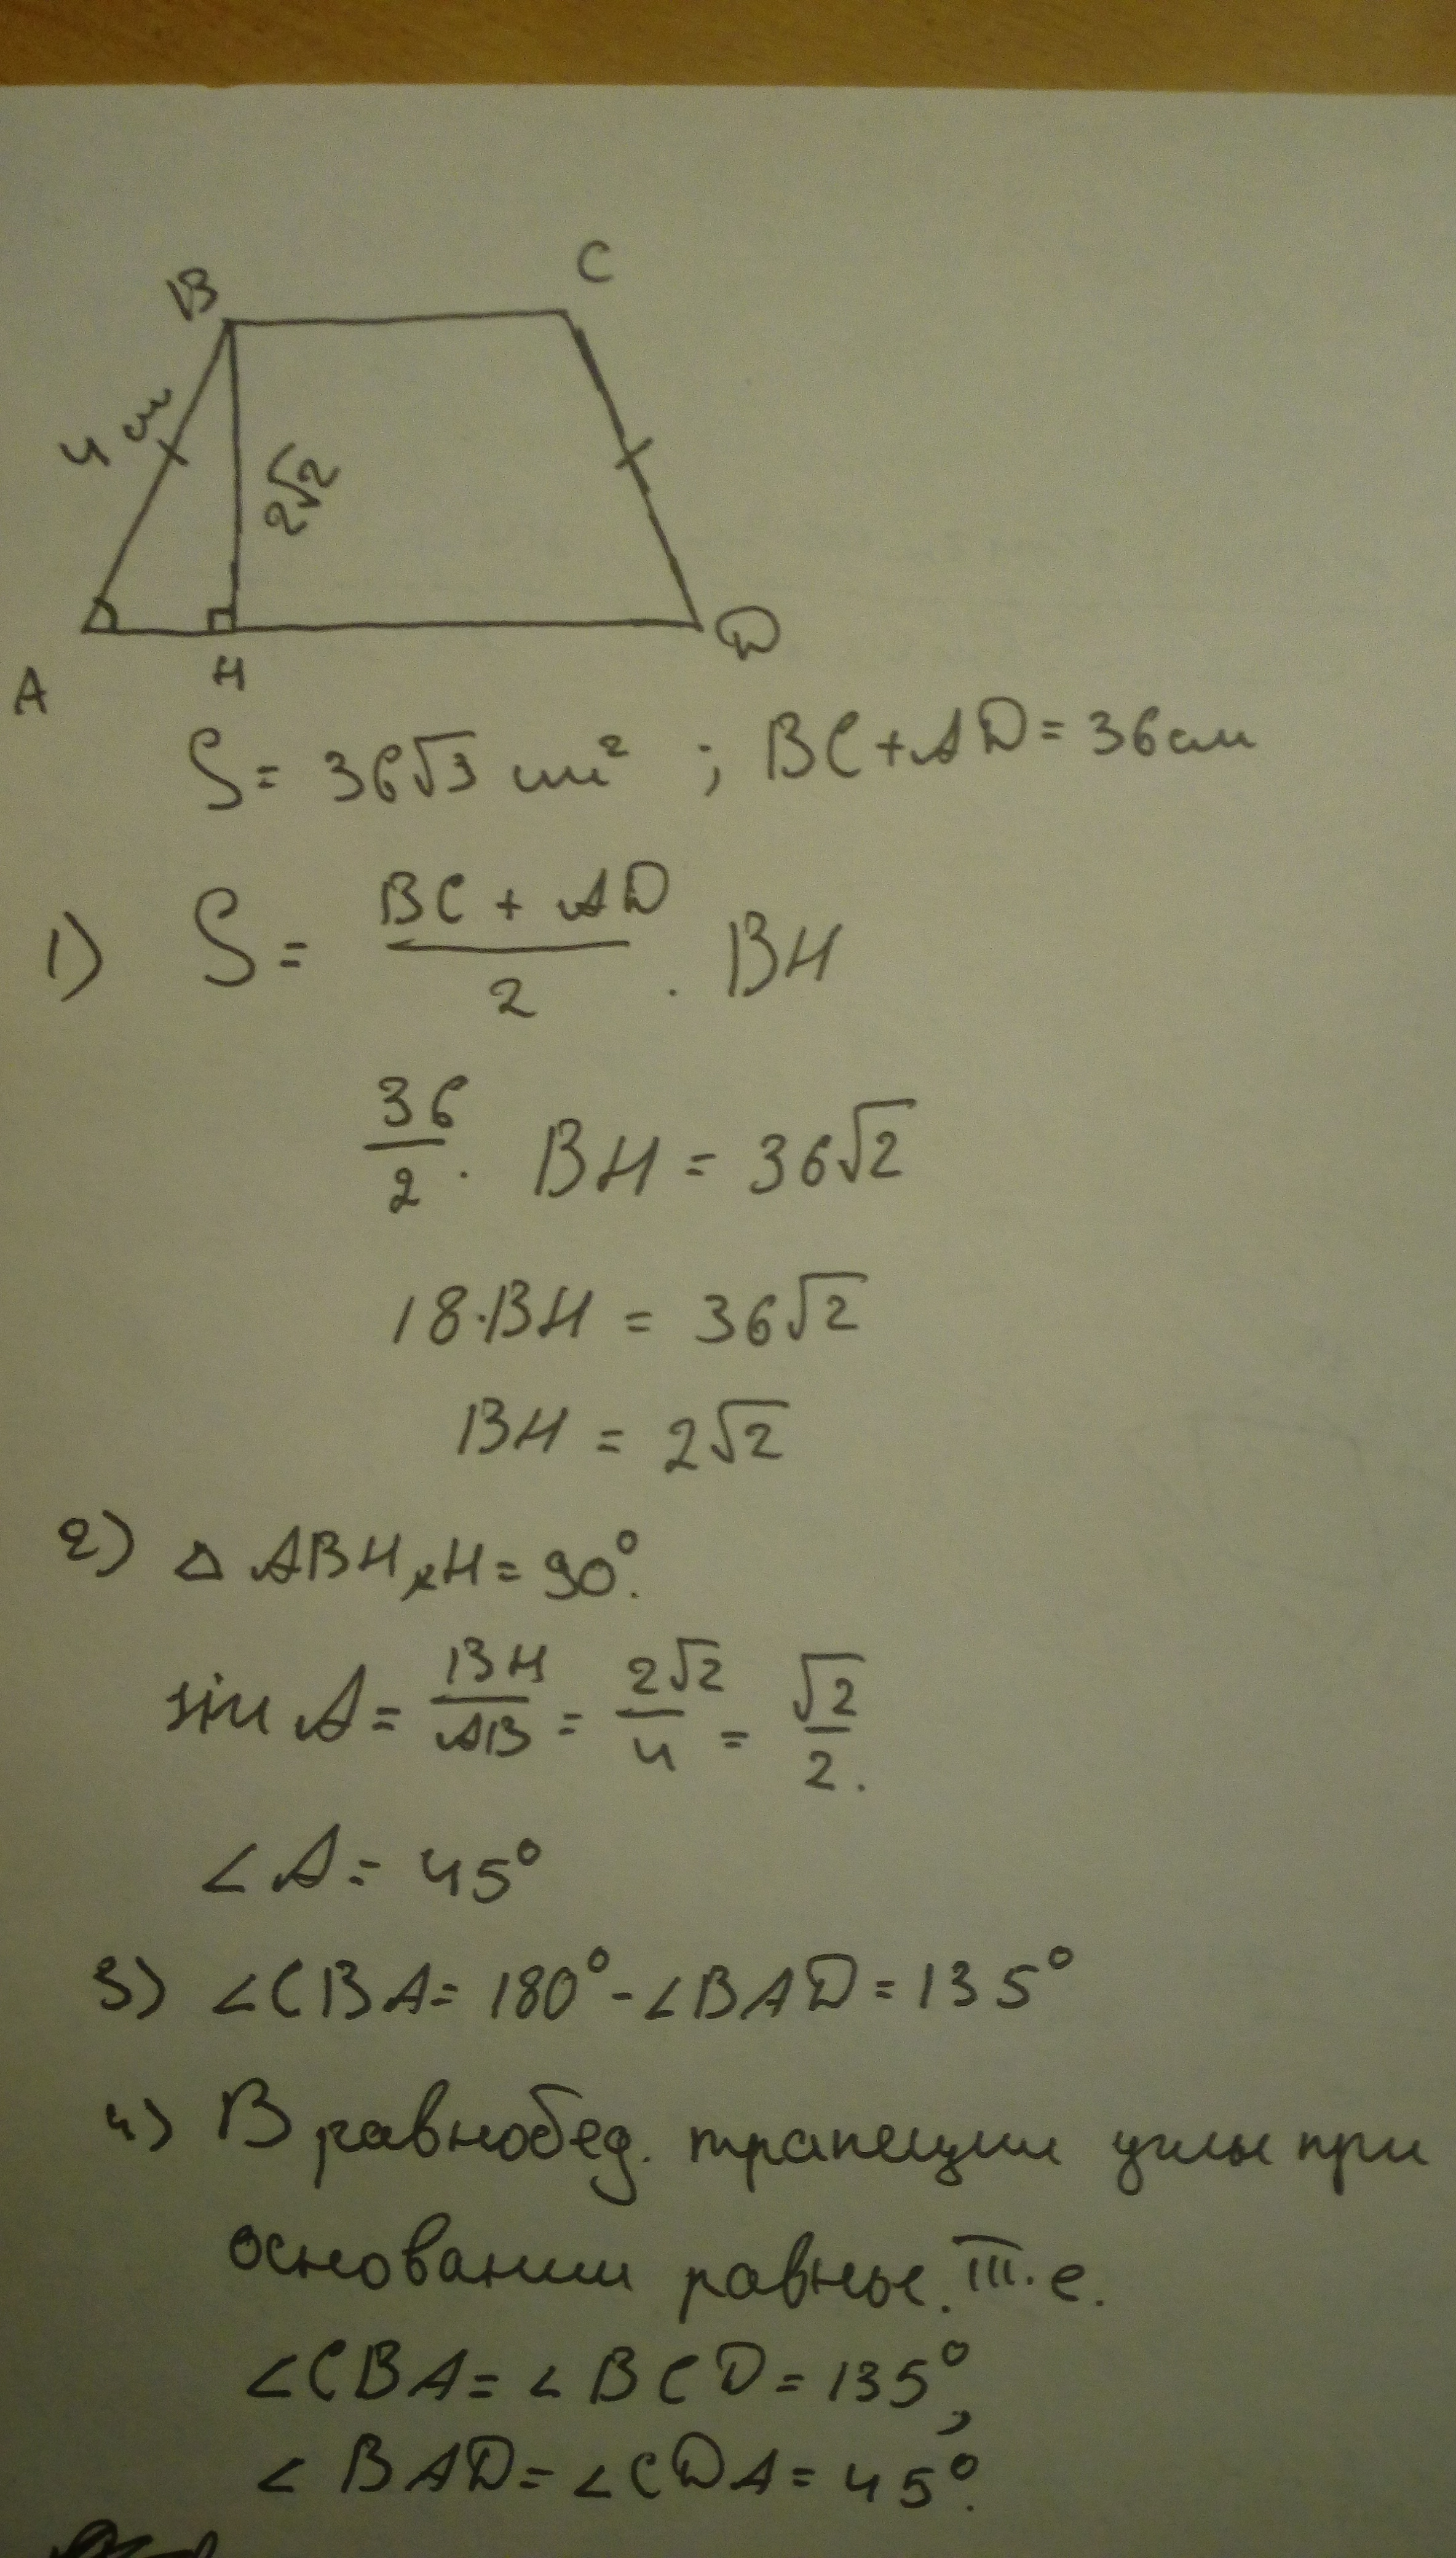 B
C
4 см
2√2
A
H
D
S = 36√3 см² ; BC + AD = 36 см
1) S = (BC + AD)/2 · BH
36/2 · BH = 36√2
18 · BH = 36√2
BH = 2√2
2) △ ABH, ∠H = 90°.
sin A = BH/AB = 2√2/4 = √2/2.
∠A = 45°
3) ∠CBA = 180° - ∠BAD = 135°
4) В равнобед. трапеции углы при
основании равны. Т.е.
∠CBA = ∠BCD = 135°,
∠BAD = ∠CDA = 45°.